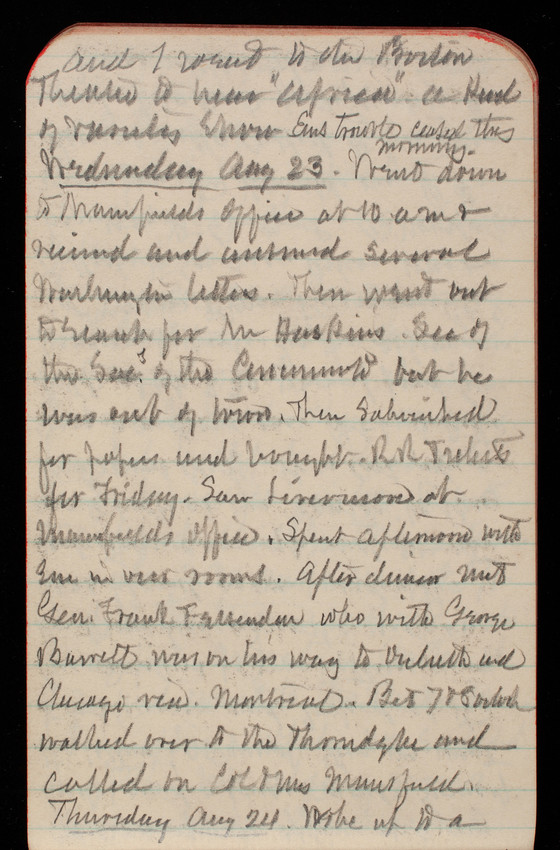 and I went to the Boston
Theatre to hear "Africa" a kind
of variety Show Ems trouble ceased this
morning.
Wednesday Aug 23. Went down
to Mansfields Office at 10 a m &
received and answered several
Washington letters. Then went out
to search for Mr Haskins. Sec of
the Soc's of the but he
was out of town. Then Subscribed
for papers and bought R R Tickets
for Friday. Saw Livermore at
Mansfields Office. Spent afternoon with
Em in our rooms. After dinner met
Gen. Frank Fessenden who with George
Barrett was on his way to Duluth and
Chicago via. Montreal. Bet 7 & 8 oclock
walked over to the Thorndyke and
called on Col & Mrs Mansfield.
Thursday Aug 24. Woke up to a